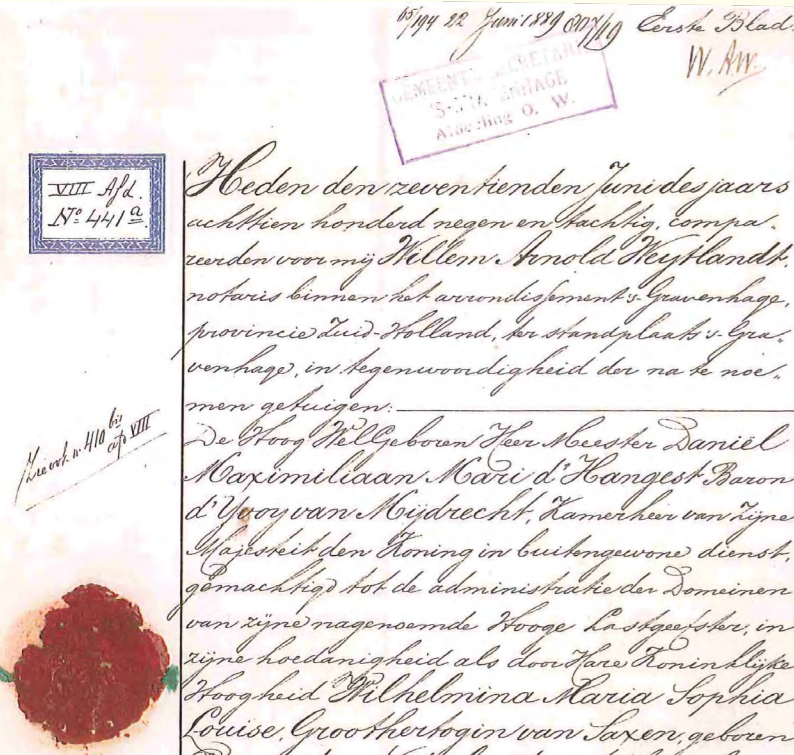 65/194 22 Juni 1889 Eerste Blad.
W. AW.
GEMEENTE SECRETARIE
'S-GRAVENHAGE
Afdeeling O. W.
VIII Afd.
No. 441 a.
Heden den zeventienden Juni des jaars
achttien honderd negen en tachtig, compa-
reerden voor mij Willem Arnold Weytlandt,
notaris binnen het arrondissement 's-Gravenhage,
provincie Zuid-Holland, ter standplaats 's-Gra-
venhage, in tegenwoordigheid der na te noe-
men getuigen:
Zie ook n. 410 bis
afd VIII
De Hoog WelGeboren Heer Meester Daniël
Maximiliaan Mari d'Hangest Baron
d'Yvoy van Mijdrecht, Kamerheer van Zijne
Majesteit den Koning in buitengewone dienst,
gemachtigd tot de administratie der Domeinen
van zijne nagenoemde Hooge Lastgeefster, in
zijne hoedanigheid als door Hare Koninklijke
Hoogheid Wilhelmina Maria Sophia
Louise, Groothertogin van Saxen, geboren